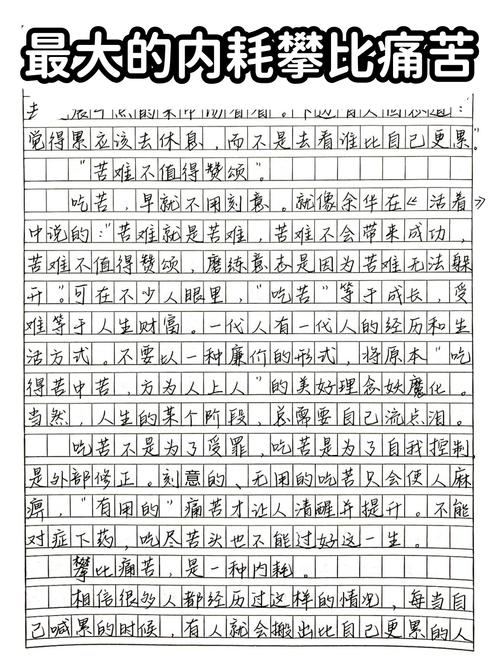 最大的内耗攀比痛苦
觉得累应该去休息,而不是去看谁比自己更累。"
"苦难不值得赞颂"。
吃苦,早就不用刻意。就像余华在《活着》
中说的:"苦难就是苦难,苦难不会带来成功,
苦难不值得赞颂,磨练意志是因为苦难无法躲
开"。可在不少人眼里,"吃苦"等于成长,受
难等于人生财富。一代人有一代人的经历和生
活方式。不要以一种廉价的形式,将原本"吃
得苦中苦,方为人上人"的美好理念妖魔化。
当然,人生的某个阶段,总需要自己流点泪。
吃苦不是为了受罪,吃苦是为了自我控制
是外部修正。刻意的、无用的吃苦只会使人麻
痹,"有用的"痛苦才让人清醒并提升。不能
对症下药,吃尽苦头也不能过好这一生。
攀比痛苦,是一种内耗。
相信很多人都经历过这样的情况,每当自
己喊累的时候,有人就会搬出比自己更累的人